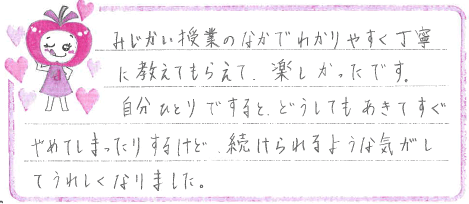 みじかい授業のなかでわかりやすく丁寧
に教えてもらえて、楽しかったです。
自分ひとりですると、どうしてもあきてすぐ
やめてしまったりするけど、続けられるような気がし
てうれしくなりました。